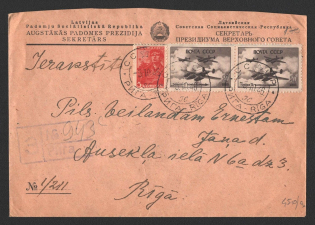 Latvijas
Padomju Sociālistiskās Republikas
AUGSTĀKĀS PADOMES PREZIDIJA
SEKRETĀRS
Латвийская
Советская Социалистическая Республика
СЕКРЕТАРЬ
ПРЕЗИДИУМА ВЕРХОВНОГО СОВЕТА
Ierakstīt
ПОЧТА СССР
ПОЧТА СССР
РИГА-RIGA
РИГА-RIGA
943
Pils. Veilandam Ernestam
Jāņa d.
Ausekļa ielā N 6a dz 3.
Rīgā.
№ 1/211